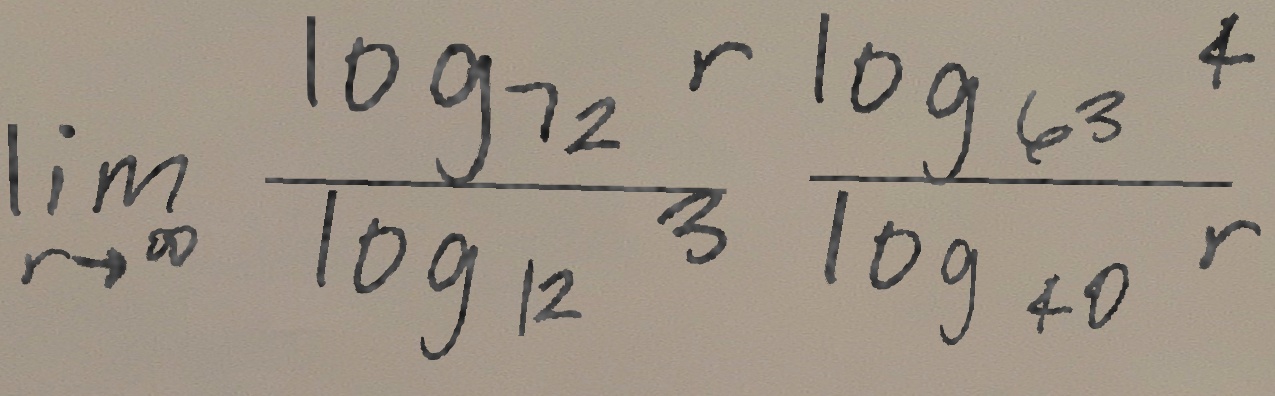 \lim_{r \to \infty} \frac{\log_{72} r}{\log_{12} 3} \frac{\log_{63} 4}{\log_{40} r}